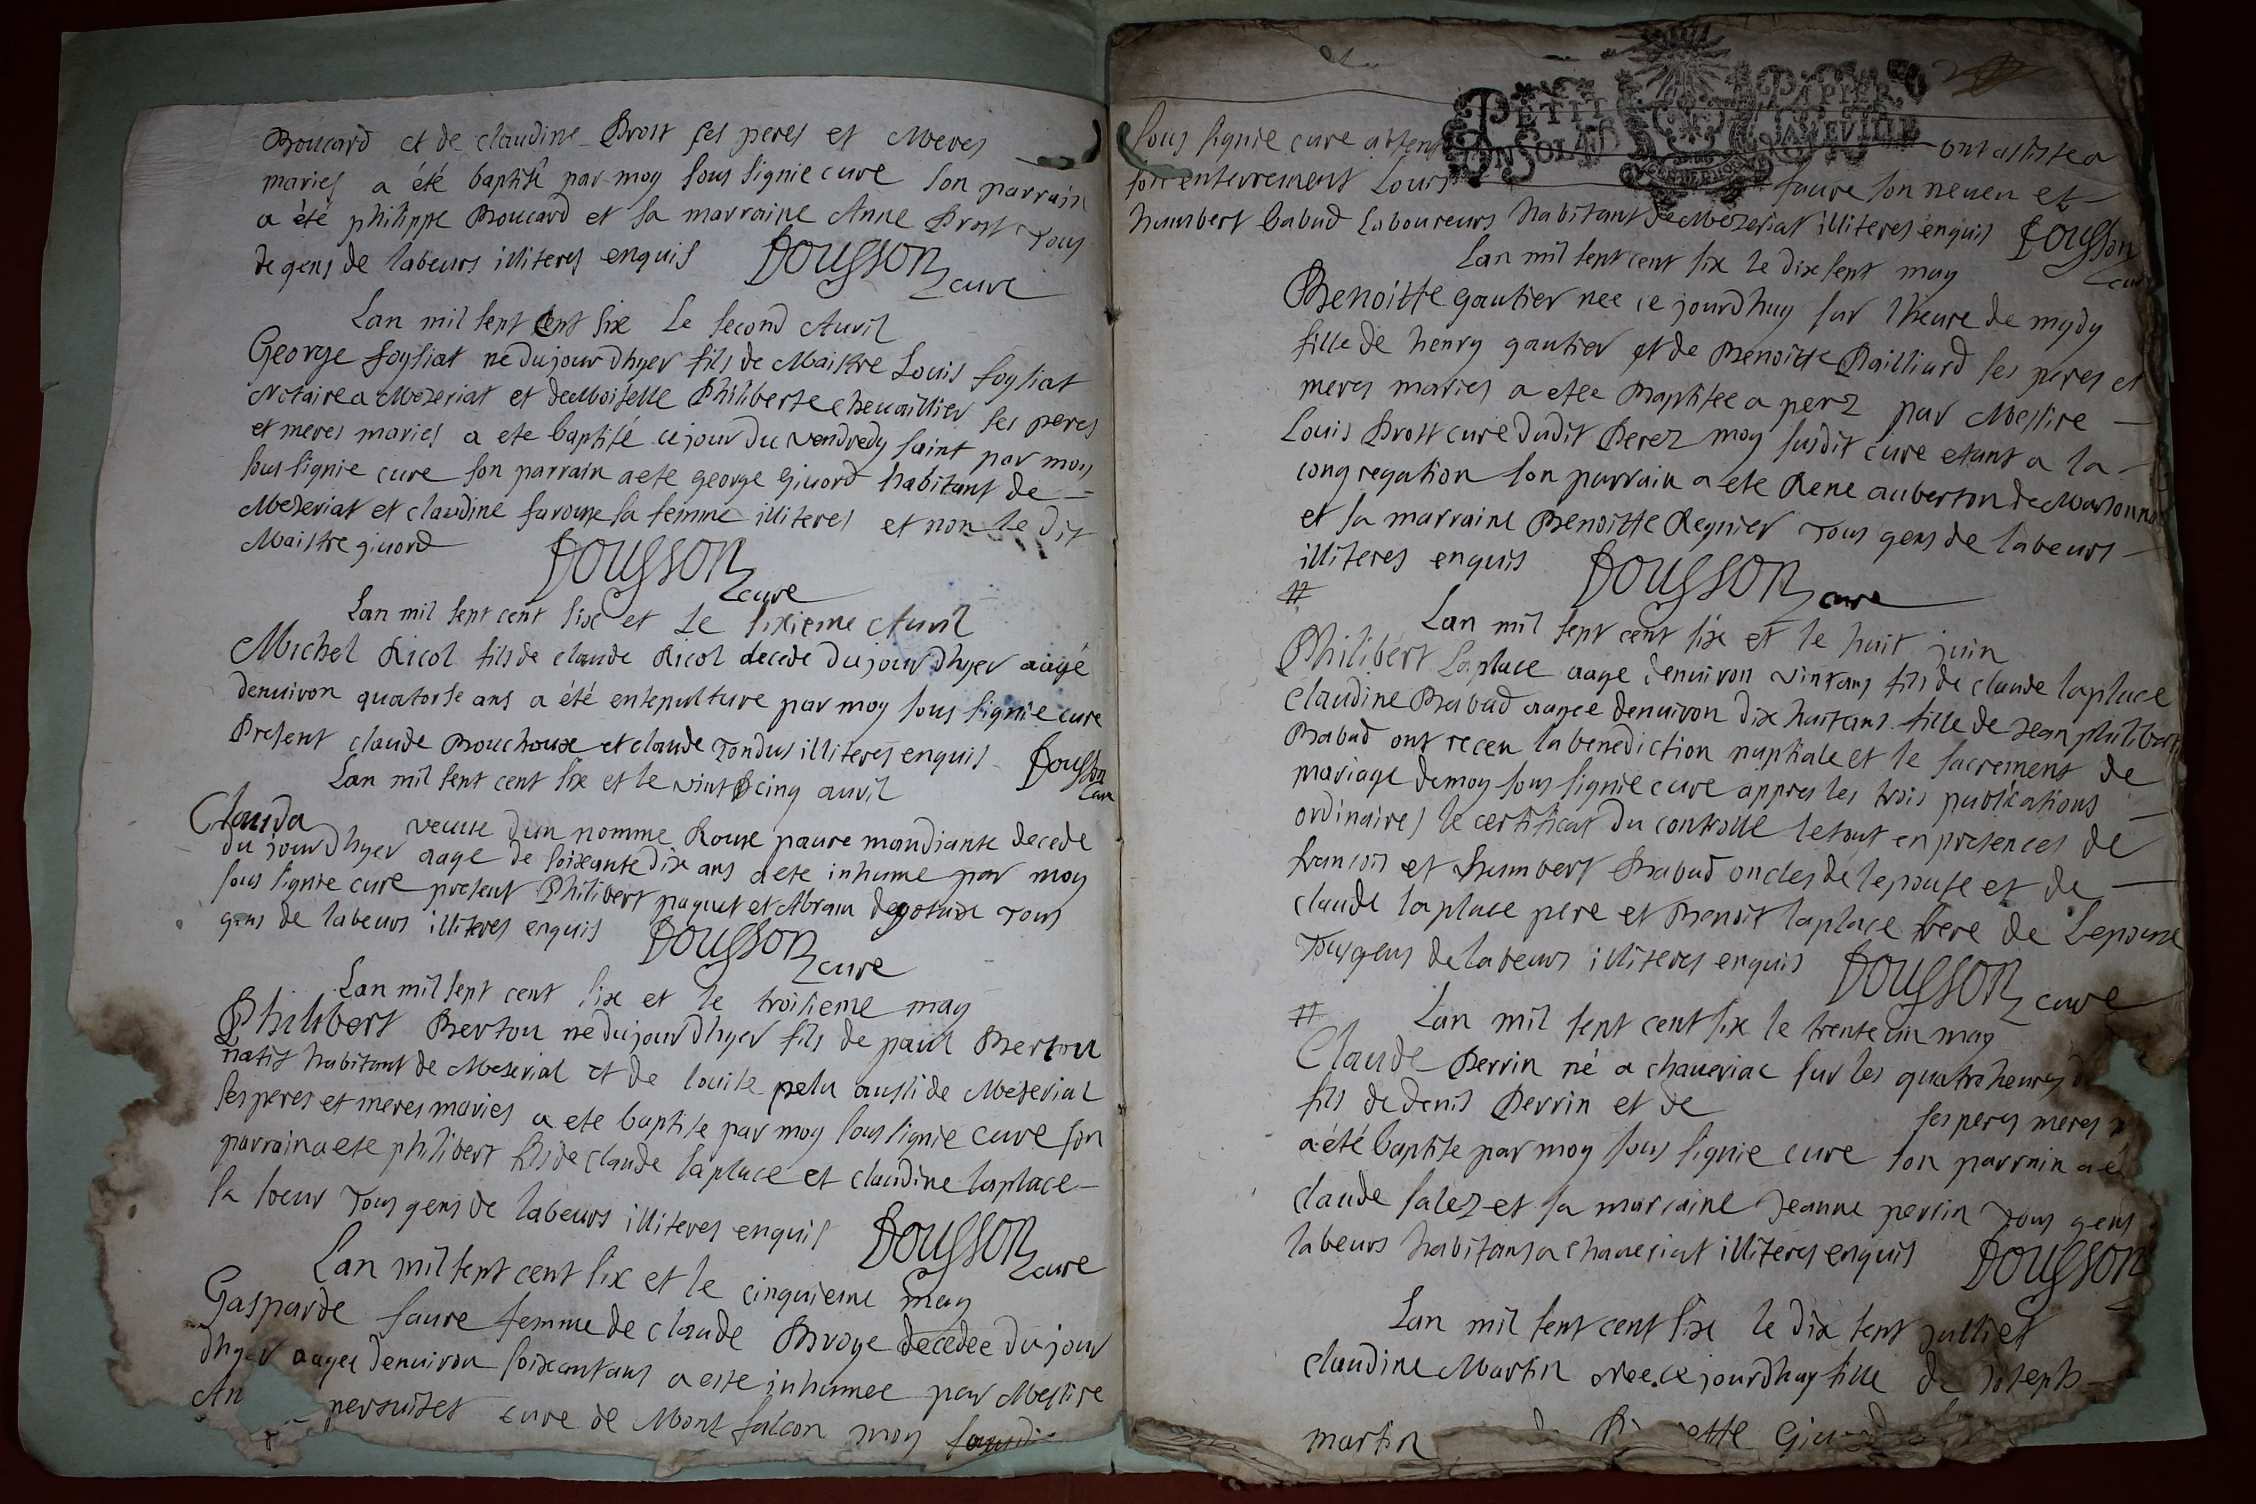 Boucard et de claudine Brost ses peres et Meres
mariés a été baptisé par moy sous signie cure son parrain
a été philippe Boucard et sa marraine Anne Brost Tous
de gens de labeurs illiteres enquis Dousson cure
Lan mil sept cent six Le second Auvil
George foysiat ne du jour dhyer fils de Maistre Louis foysiat
Notaire a Mezeriat et deMoiselle Philiberte chevaillier ses peres
et meres mariés a ete baptisé ce jour du vendredy saint par moy
sous signie cure son parrain a ete george givord habitant de
Mezeriat et claudine sa femme illiteres et non le dit
Maistre givord Dousson cure
Lan mil sept cent six et Le sixieme Auvil
Michel Ricol fils de claude Ricol decede du jour dhyer aagé
denuiron quatorse ans a été ensepulture par moy sous signie cure
Present claude Bouchoux et claude Tondus illiteres enquis Dousson cure
Lan mil sept cent six et le vint cinq auvil
Clauda veuve dun nomme Roux pauvre mandiante decede
du jour dhyer aage de soixante dix ans a ete inhume par moy
sous signie cure present Philibert paquet et Abram Tous
gens de labeurs illiteres enquis Dousson cure
Lan mil sept cent six et le troisieme may
Philibert Berton ne du jour dhyer fils de paul Berton
natif habitant de Mezerial et de louise pelu aussi de Mezerial
ses peres et meres mariés a ete baptise par moy sous signie cure son
parrain a ete philibert fils de claude laplace et claudine laplace
sa soeur Tous gens de labeurs illiteres enquis Dousson cure
Lan mil sept cent six et le cinquieme may
Gasparde faure femme de claude Broye decedee du jour
dhyer aagee denuiron soixant ans a este inhumee par Messire
An cure de Mont falcon moy
sous signie cure ont assiste a
son enterrement faure son neveu et
humbert babad laboureurs habitant de Mezeriat illiteres enquis Dousson cure
PETIT PAPIER
Lan mil sept cent six le dix sept may
Benoitte gautier nee ce jourdhuy sur lheure de mydy
fille de henry gautier et de Benoitte Railliard ses peres et
meres mariés a etee Baptisee a perz par Messire
Louis Brost cure dudit Perez moy susdit cure etant a la
congregation son parrain a ete Rene auberton de Marsonna
et sa marraine Benoitte Regnier Tous gens de labeurs
illiteres enquis Dousson cure
Lan mil sept cent six et le huit juin
Philibert Laplace aage denuiron vint ans fils de claude laplace
claudine Babad aagee denuiron dix huit ans fille de Jean philibert
Babad ont receu la benediction nuptiale et le sacrement de
mariage de moy sous signie cure appres les trois publications
ordinaires le certificat du controlle le tout en presences de
francois et humbert Babad oncles de lepouse et de
claude laplace pere et Benoit laplace frere de Lepoux
Tous gens de labeurs illiteres enquis Dousson cure
Lan mil sept cent six le trente un may
Claude Perrin né a chaveriac sur les quatre heures d
fils de denis Perrin et de ses peres meres
a été baptise par moy sous signie cure son parrain a é
claude salez et sa marraine Jeanne perrin Tous gens
labeurs habitans a chaveriat illiteres enquis Dousson
Lan mil sept cent six le dix sept julliet
claudine Martin nee ce jourdhuy fille de Joseph
martin